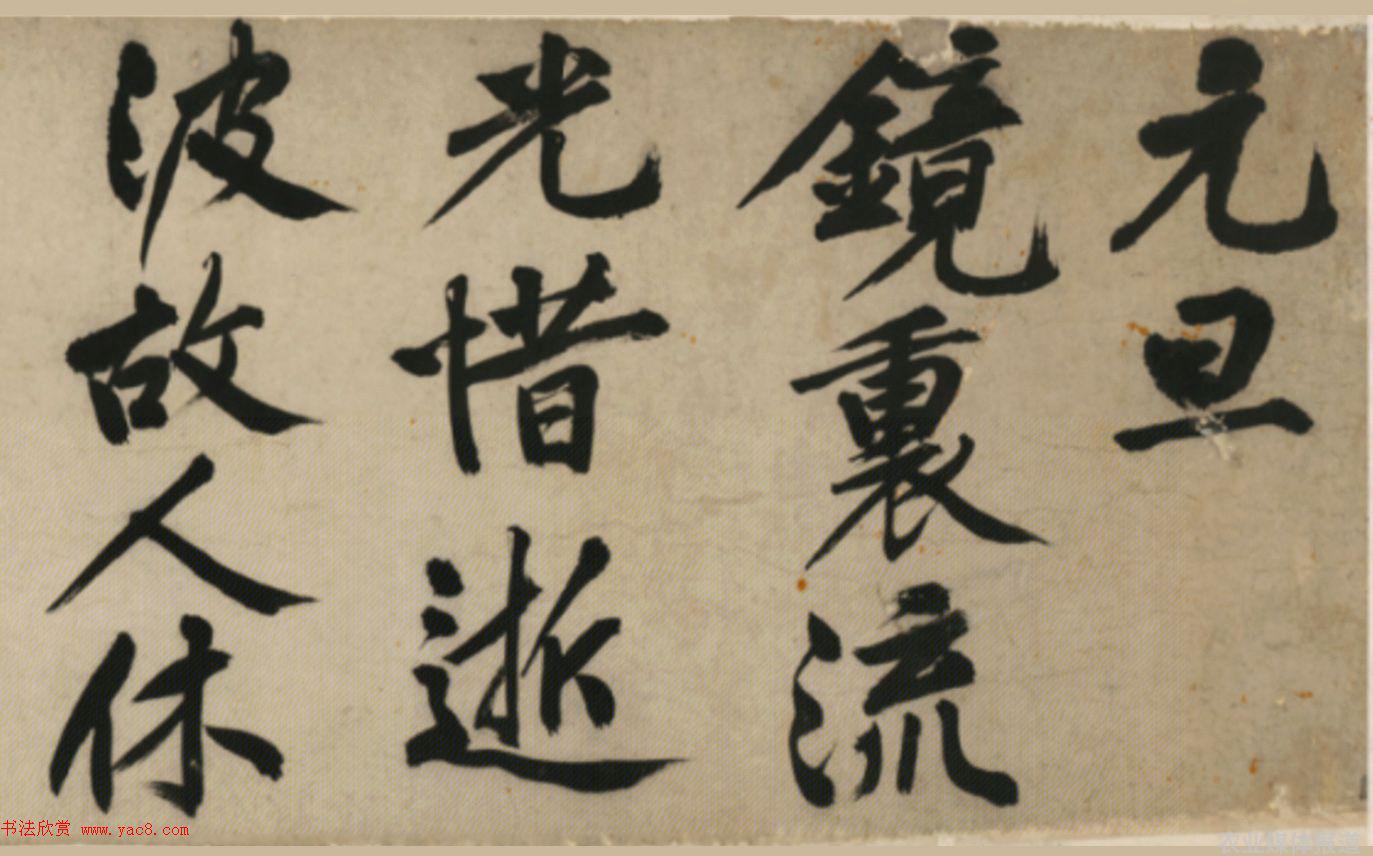 元旦
鏡裏流
光惜逝
波故人休
书法欣赏 www.yac8.com
农业媒体报道